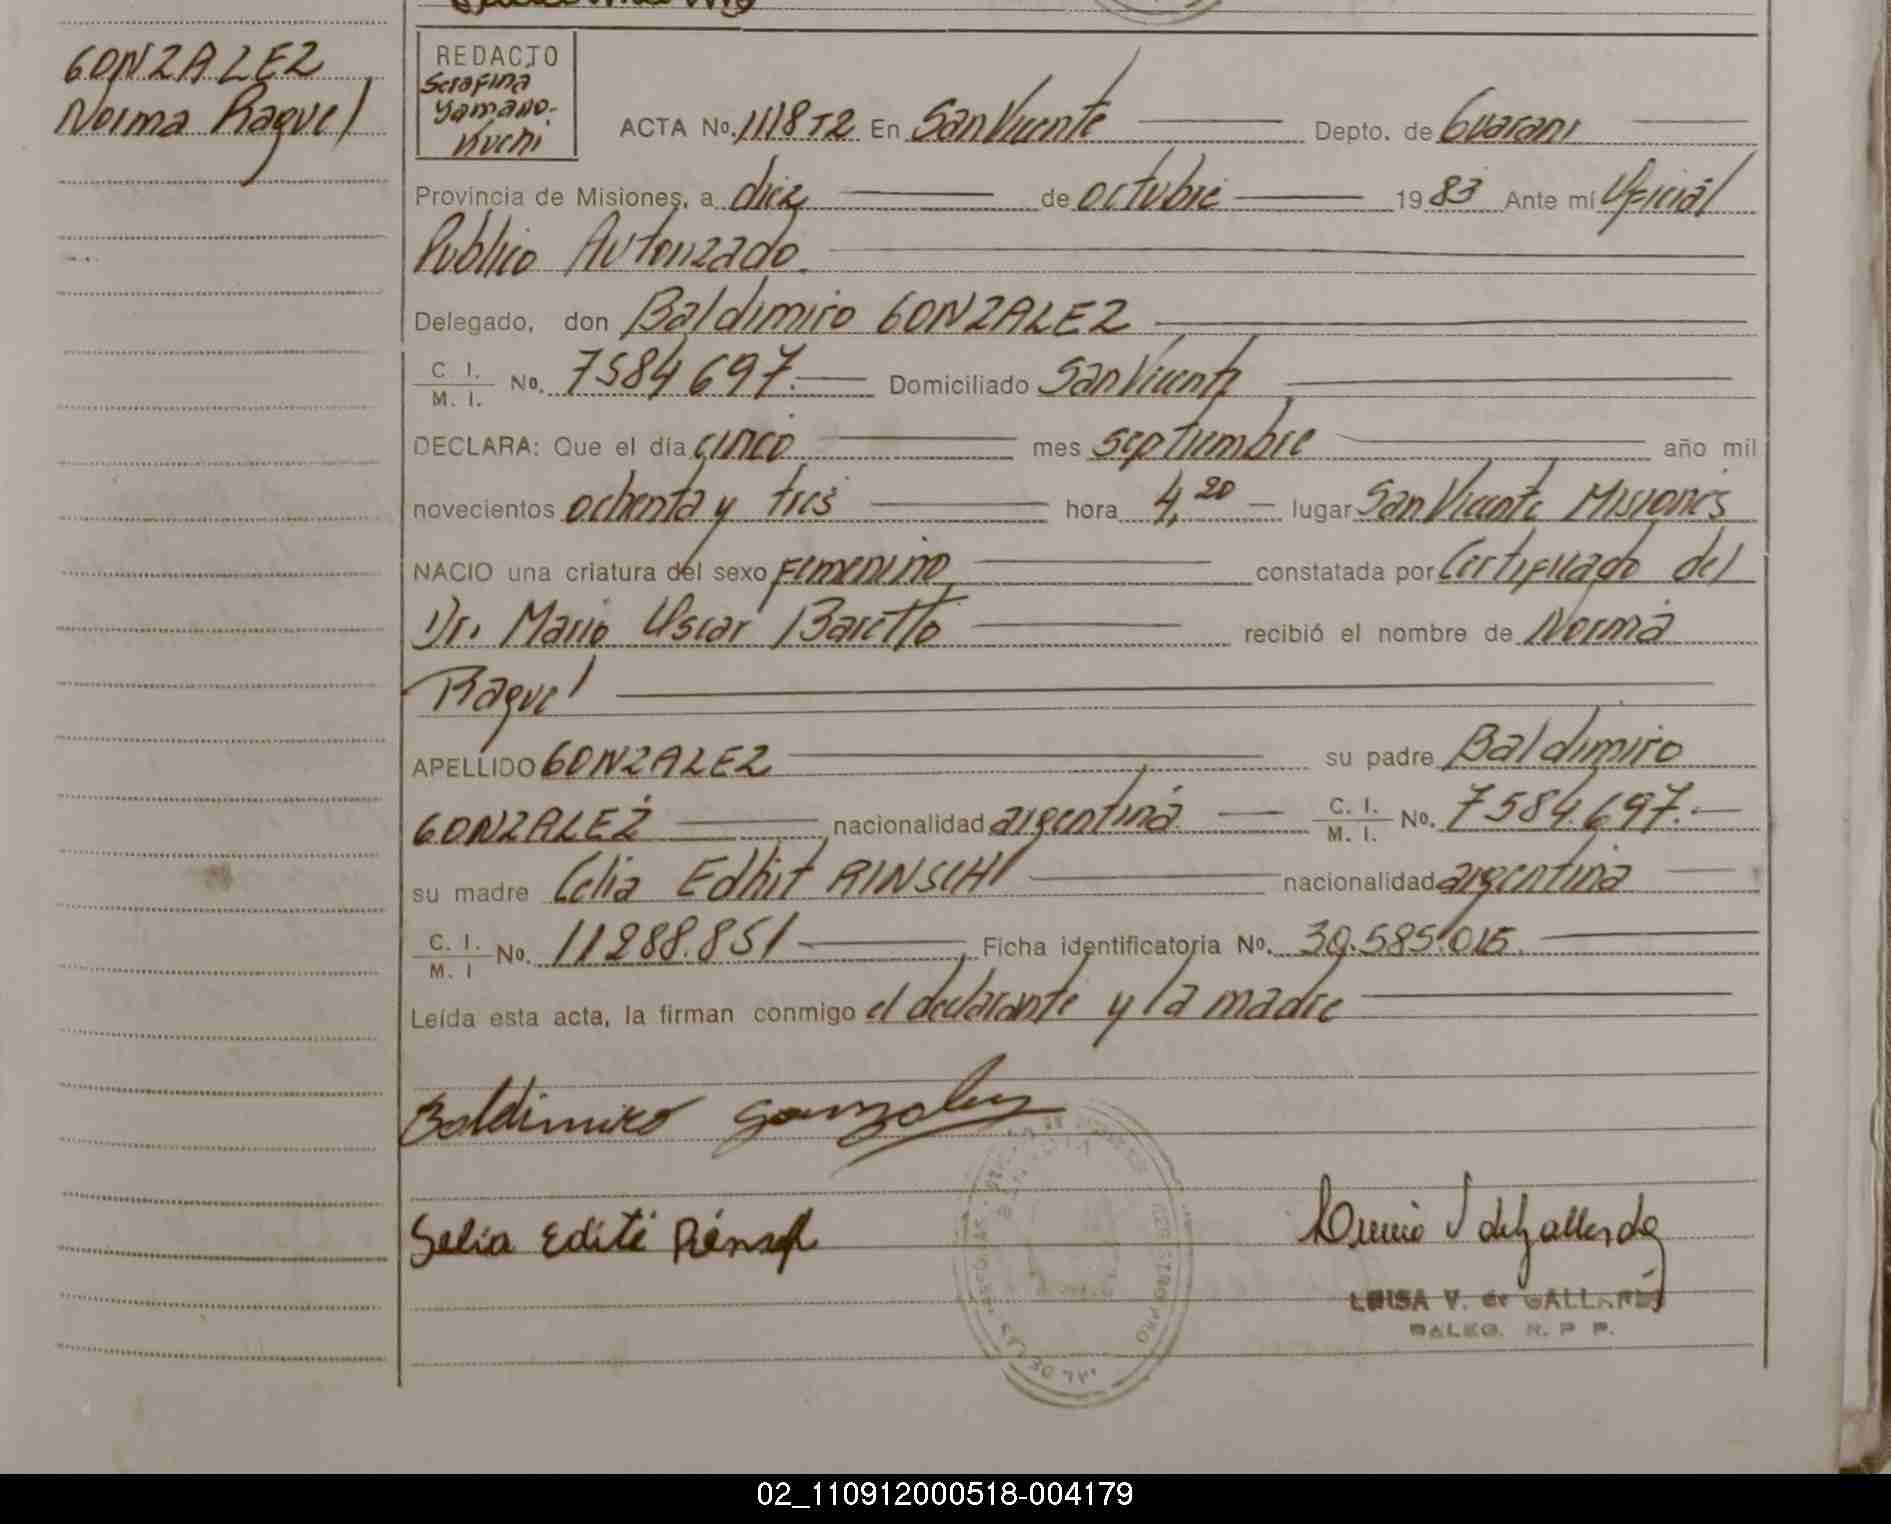 GONZALEZ
Norma Raquel
REDACTO
Serafina
Yamano.
Kuchi
ACTA No. 1118 T2 En San Vicente Depto. de Guarani
Provincia de Misiones, a diez de octubre 1983 Ante mí Oficial
Publico Autorizado
Delegado, don Baldimiro GONZALEZ
C. I. / M. I. No. 7584697.— Domiciliado San Vicente
DECLARA: Que el día cinco mes septiembre año mil
novecientos ochenta y tres hora 4,20 — lugar San Vicente Misiones
NACIO una criatura del sexo femenino constatada por Certificado del
Dr. Mario Oscar Baretto recibió el nombre de Norma
Raquel
APELLIDO GONZALEZ su padre Baldimiro
GONZALEZ nacionalidad argentina C. I. / M. I. No. 7584.697.—
su madre Celia Edhit RINSCH nacionalidad argentina
C. I. / M. I No. 11288.851 Ficha identificatoria No. 30.585.015.
Leída esta acta, la firman conmigo el declarante y la madre
Baldimiro Gonzalez
Selia Edite
LUISA V. de
R. P. P.
02_110912000518-004179